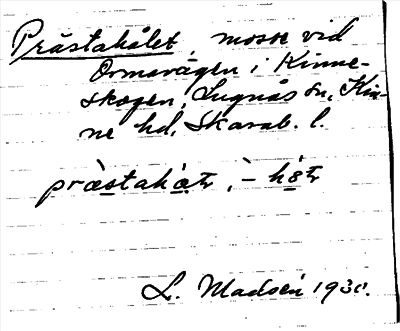 Prästahålet, mosse vid
Ormavägen i Kinne-
skogen, Lugnås sn, Kin-
ne hd, Skarab. l.
L. Madsén 1930.